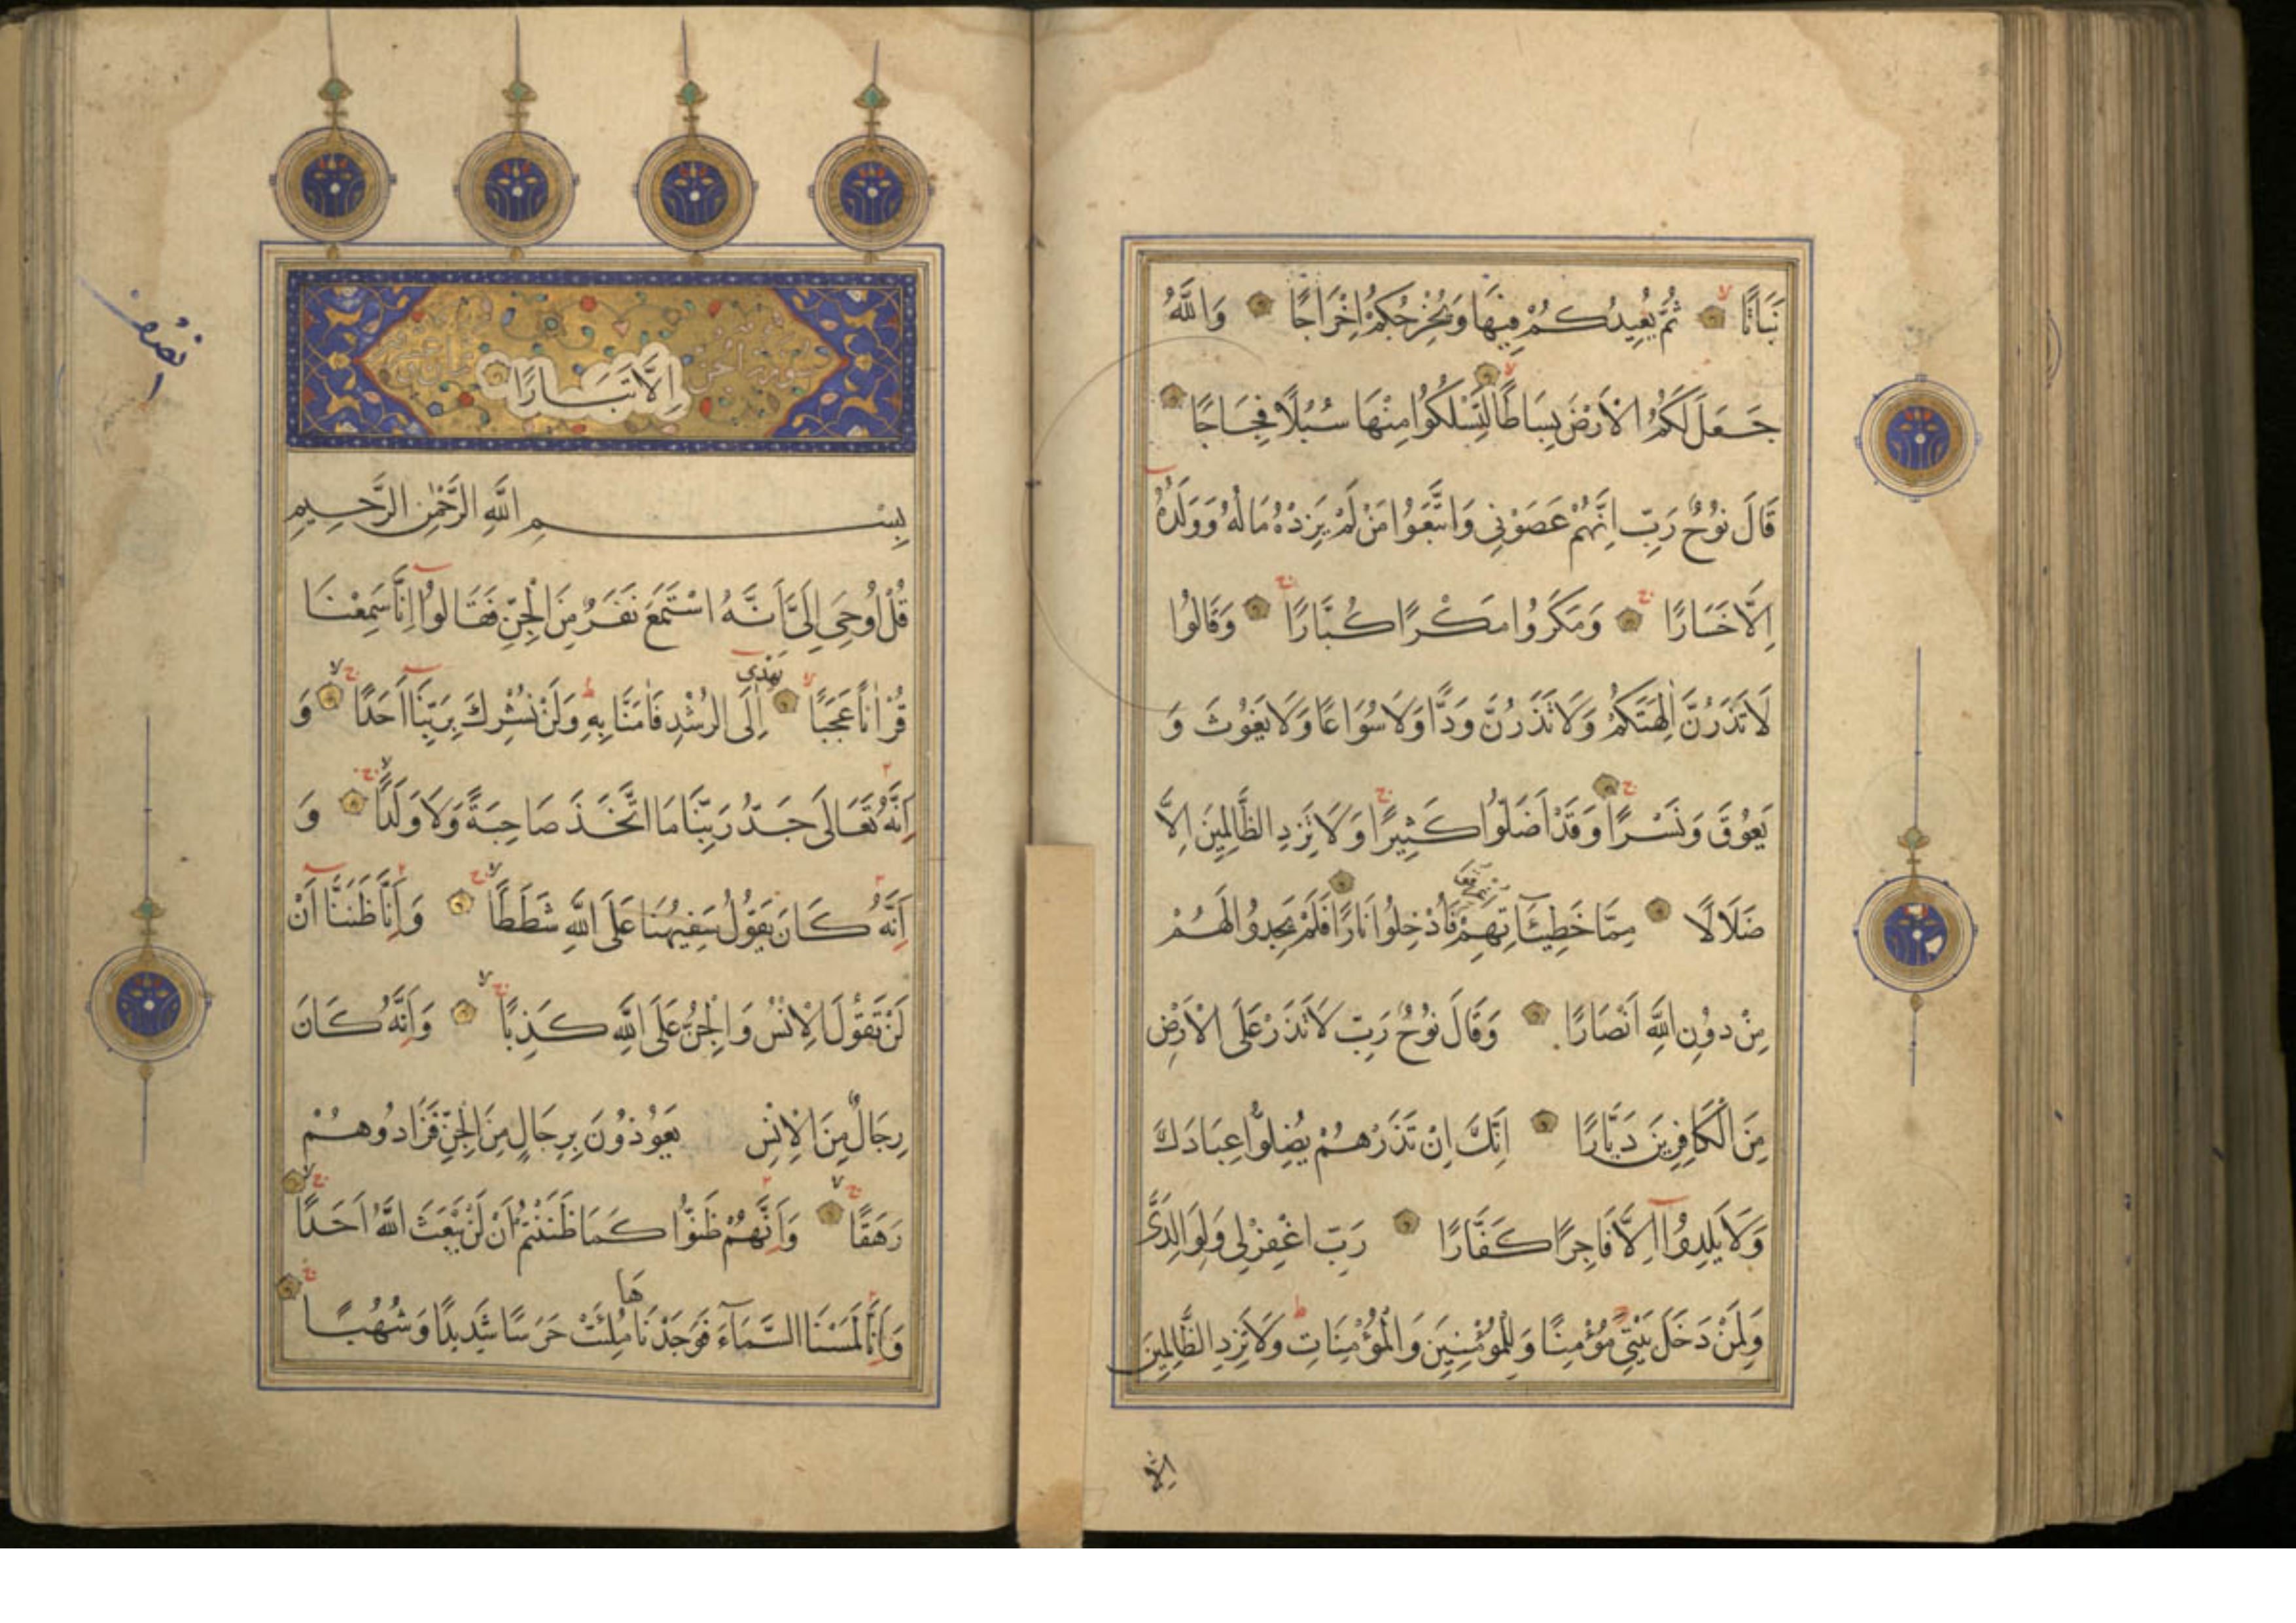 نَبَاتًا ثُمَّ يُعِيدُكُمْ فِيهَا وَيُخْرِجُكُمْ اِخْرَاجًا وَاللّٰهُ
جَعَلَ لَكُمُ الْاَرْضَ بِسَاطًا لِتَسْلُكُوا مِنْهَا سُبُلًا فِجَاجًا
قَالَ نُوحٌ رَبِّ اِنَّهُمْ عَصَوْنِي وَاتَّبَعُوا مَنْ لَمْ يَزِدْهُ مَالُهُ وَوَلَدُهُ
اِلَّا خَسَارًا وَمَكَرُوا مَكْرًا كُبَّارًا وَقَالُوا
لَا تَذَرُنَّ اٰلِهَتَكُمْ وَلَا تَذَرُنَّ وَدًّا وَلَا سُوَاعًا وَلَا يَغُوثَ وَ
يَعُوقَ وَنَسْرًا وَقَدْ اَضَلُّوا كَثِيرًا وَلَا تَزِدِ الظَّالِمِينَ اِلَّا
ضَلَالًا مِمَّا خَطِيـَٔاتِهِمْ فَاُدْخِلُوا نَارًا فَلَمْ يَجِدُوا لَهُمْ
مِنْ دُونِ اللّٰهِ اَنْصَارًا وَقَالَ نُوحٌ رَبِّ لَا تَذَرْ عَلَى الْاَرْضِ
مِنَ الْكَافِرِينَ دَيَّارًا اِنَّكَ اِنْ تَذَرْهُمْ يُضِلُّوا عِبَادَكَ
وَلَا يَلِدُوٓا اِلَّا فَاجِرًا كَفَّارًا رَبِّ اغْفِرْ لِي وَلِوَالِدَيَّ
وَلِمَنْ دَخَلَ بَيْتِيَ مُؤْمِنًا وَلِلْمُؤْمِنِينَ وَالْمُؤْمِنَاتِ وَلَا تَزِدِ الظَّالِمِينَ
اِلَّا
نصف
اِلَّا تَبَـارًا
بِسْـــمِ اللّٰهِ الرَّحْمٰنِ الرَّحِيمِ
قُلْ اُوحِيَ اِلَيَّ اَنَّهُ اسْتَمَعَ نَفَرٌ مِنَ الْجِنِّ فَقَالُوٓا اِنَّا سَمِعْنَا
قُرْاٰنًا عَجَبًا يَهْدِي اِلَى الرُّشْدِ فَاٰمَنَّا بِهِ وَلَنْ نُشْرِكَ بِرَبِّنَآ اَحَدًا وَ
اَنَّهُ تَعَالَى جَدُّ رَبِّنَا مَا اتَّخَذَ صَاحِبَةً وَلَا وَلَدًا وَ
اَنَّهُ كَانَ يَقُولُ سَفِيهُنَا عَلَى اللّٰهِ شَطَطًا وَاَنَّا ظَنَنَّآ اَنْ
لَنْ تَقُولَ الْاِنْسُ وَالْجِنُّ عَلَى اللّٰهِ كَذِبًا وَاَنَّهُ كَانَ
رِجَالٌ مِنَ الْاِنْسِ يَعُوذُونَ بِرِجَالٍ مِنَ الْجِنِّ فَزَادُوهُمْ
رَهَقًا وَاَنَّهُمْ ظَنُّوا كَمَا ظَنَنْتُمْ اَنْ لَنْ يَبْعَثَ اللّٰهُ اَحَدًا
وَاَنَّا لَمَسْنَا السَّمَآءَ فَوَجَدْنَاهَا مُلِئَتْ حَرَسًا شَدِيدًا وَشُهُبًا